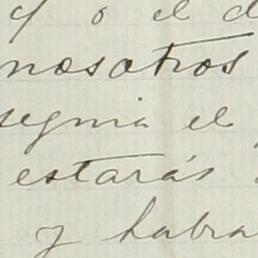 y o el d
nosotros
segnia el
estarás
y habra